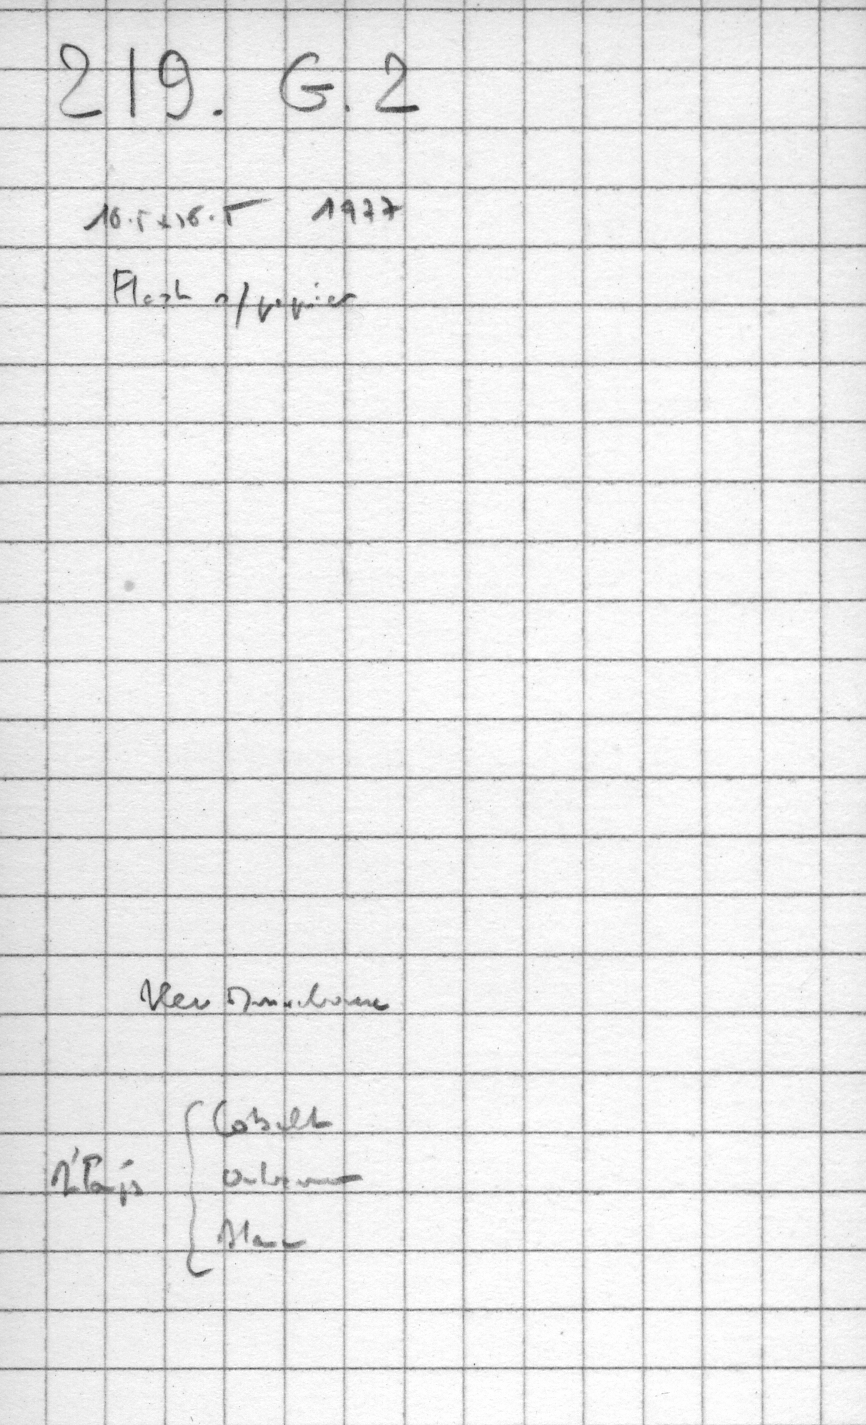 219. G.2
16.5 x 16.5 1977
Flash s/papier
Bleu
Cobalt
Outremer
Blanc